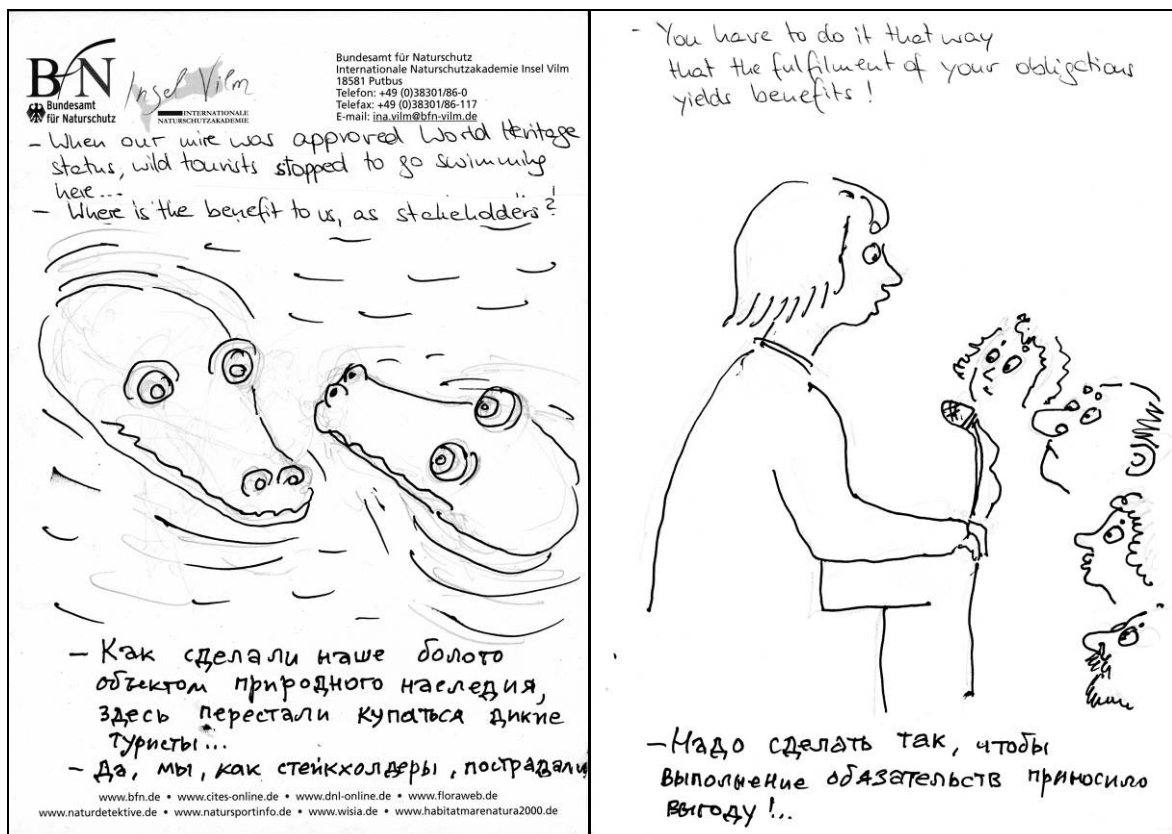 BfN
Bundesamt
für Naturschutz
Insel Vilm
INTERNATIONALE
NATURSCHUTZAKADEMIE
Bundesamt für Naturschutz
Internationale Naturschutzakademie Insel Vilm
18581 Putbus
Telefon: +49 (0)38301/86-0
Telefax: +49 (0)38301/86-117
E-mail: ina.vilm@bfn-vilm.de
- When our mire was approved World Heritage
status, wild tourists stopped to go swimming
here...
- Where is the benefit to us, as stakeholders?
- Как сделали наше болото
объектом природного наследия,
здесь перестали купаться дикие
туристы...
- Да, мы, как стейкхолдеры, пострадали
www.bfn.de • www.cites-online.de • www.dnl-online.de • www.floraweb.de
www.naturdetektive.de • www.natursportinfo.de • www.wisia.de • www.habitatmarenatura2000.de
- You have to do it that way
that the fulfilment of your obligations
yields benefits!
- Надо сделать так, чтобы
выполнение обязательств приносило
выгоду!...